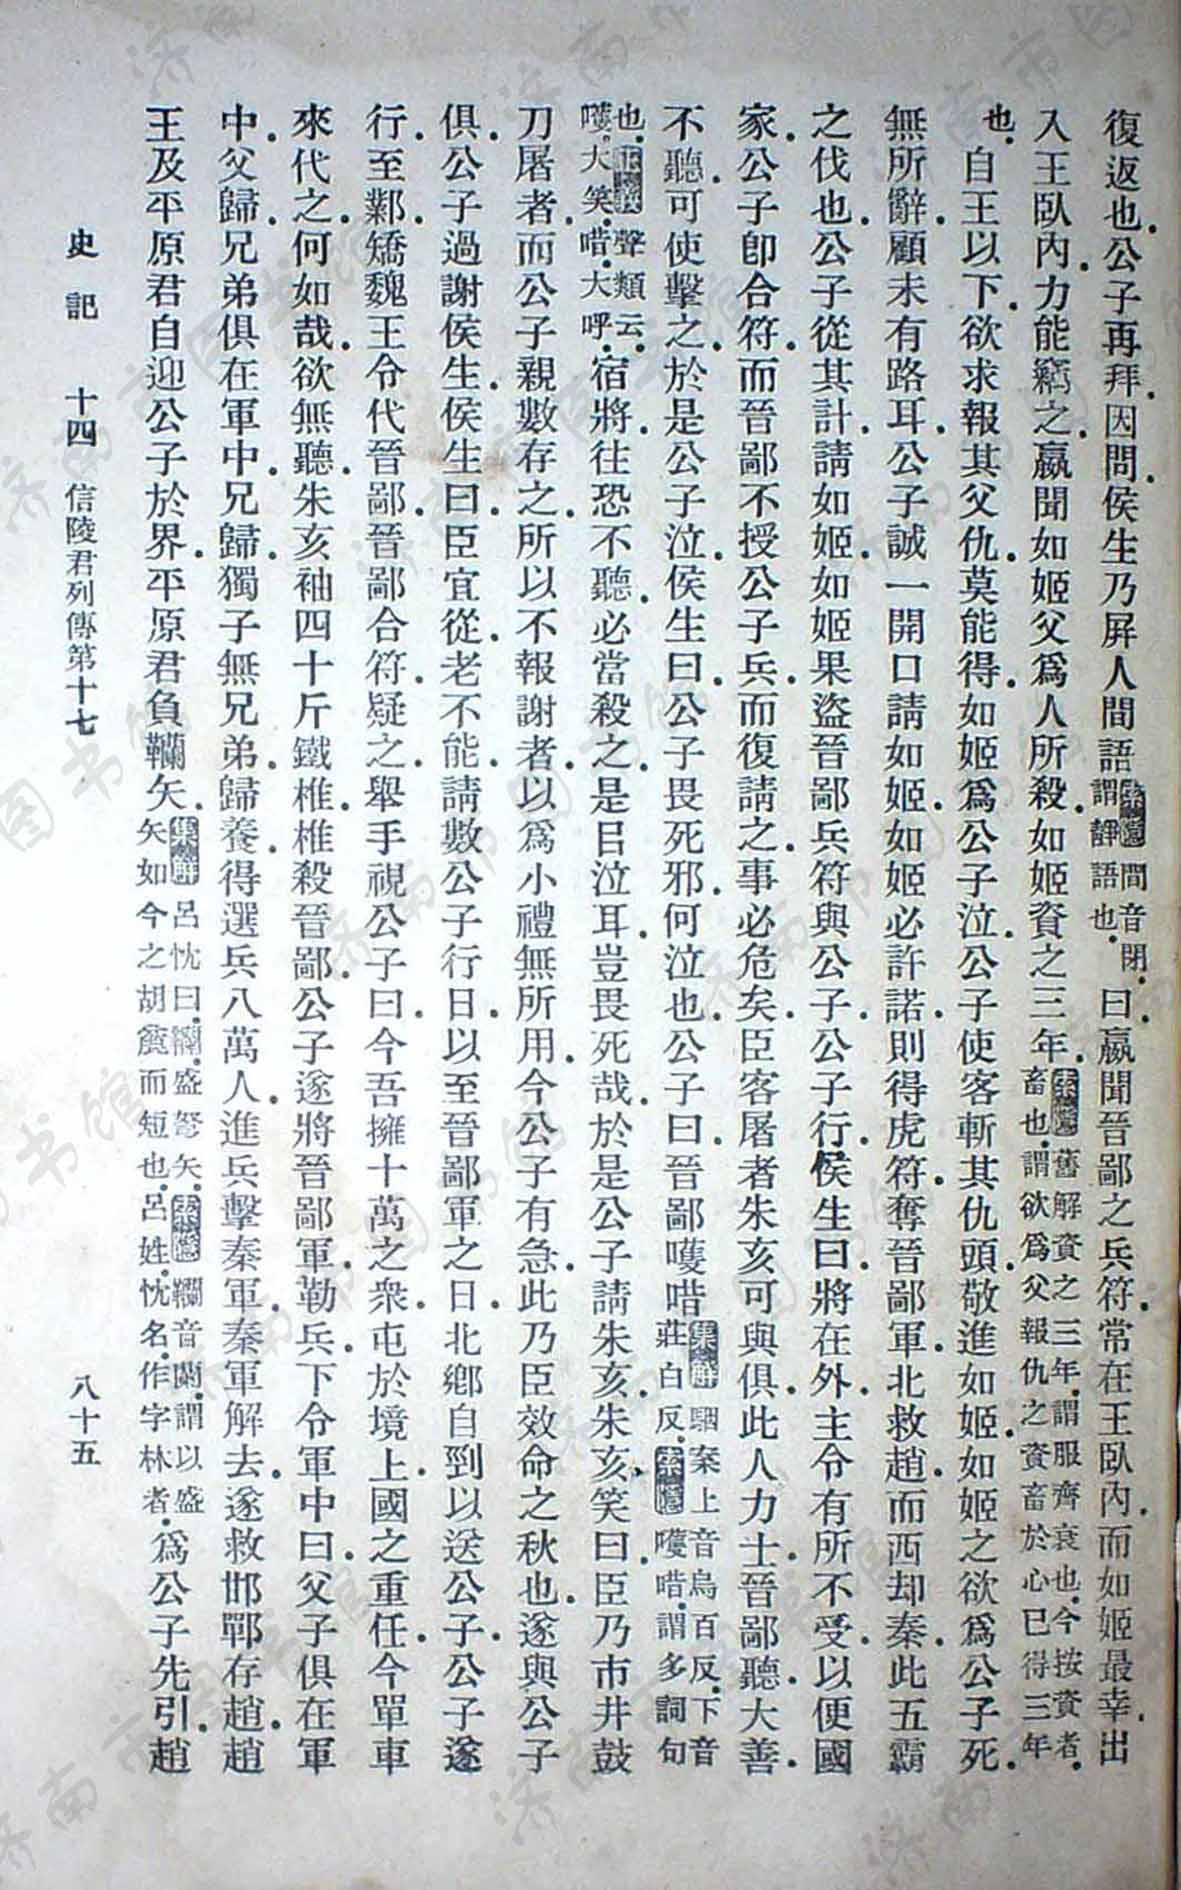 復返也。公子再拜。因問。侯生乃屏人間語索隱間音閉。謂靜語也。曰。嬴聞晉鄙之兵符。常在王臥內。而如姬最幸。出
入王臥內。力能竊之。嬴聞如姬父爲人所殺。如姬資之三年。索隱舊解資之三年。謂服齊衰也。今按資者。畜也。謂欲爲父報仇之資畜於心已得三年
也。自王以下。欲求報其父仇。莫能得。如姬爲公子泣。公子使客斬其仇頭。敬進如姬。如姬之欲爲公子死。
無所辭。顧未有路耳。公子誠一開口請如姬。如姬必許諾。則得虎符。奪晉鄙軍。北救趙。而西却秦。此五霸
之伐也。公子從其計。請如姬。如姬果盜晉鄙兵符與公子。公子行。侯生曰。將在外。主令有所不受。以便國
家。公子卽合符。而晉鄙不授公子兵。而復請之。事必危矣。臣客屠者朱亥可與俱。此人力士。晉鄙聽。大善。
不聽。可使擊之。於是公子泣。侯生曰。公子畏死邪。何泣也。公子曰。晉鄙嚄唶集解駰案上音烏百反。下音莊白反。索隱嚄唶。謂多詞句
也。正義聲類云。嚄。大笑。唶。大呼。宿將。往恐不聽。必當殺之。是㠯泣耳。豈畏死哉。於是公子請朱亥。朱亥笑曰。臣乃市井鼓
刀屠者。而公子親數存之。所以不報謝者。以爲小禮無所用。今公子有急。此乃臣效命之秋也。遂與公子
俱。公子過謝侯生。侯生曰。臣宜從。老不能。請數公子行日。以至晉鄙軍之日。北鄉自剄以送公子。公子遂
行。至鄴。矯魏王令代晉鄙。晉鄙合符。疑之。舉手視公子曰。今吾擁十萬之衆。屯於境上。國之重任。今單車
來代之。何如哉。欲無聽。朱亥袖四十斤鐵椎。椎殺晉鄙。公子遂將晉鄙軍。勒兵。下令軍中曰。父子俱在軍
中。父歸。兄弟俱在軍中。兄歸。獨子無兄弟。歸養。得選兵八萬人。進兵擊秦軍。秦軍解去。遂救邯鄲存趙。趙
王及平原君自迎公子於界。平原君負韊矢。集解呂忱曰。韊。盛弩矢。索隱韊音闌。謂以盛矢如今之胡簏而短也。呂姓。忱名。作字林者。爲公子先引。趙
史記 十四 信陵君列傳第十七 八十五